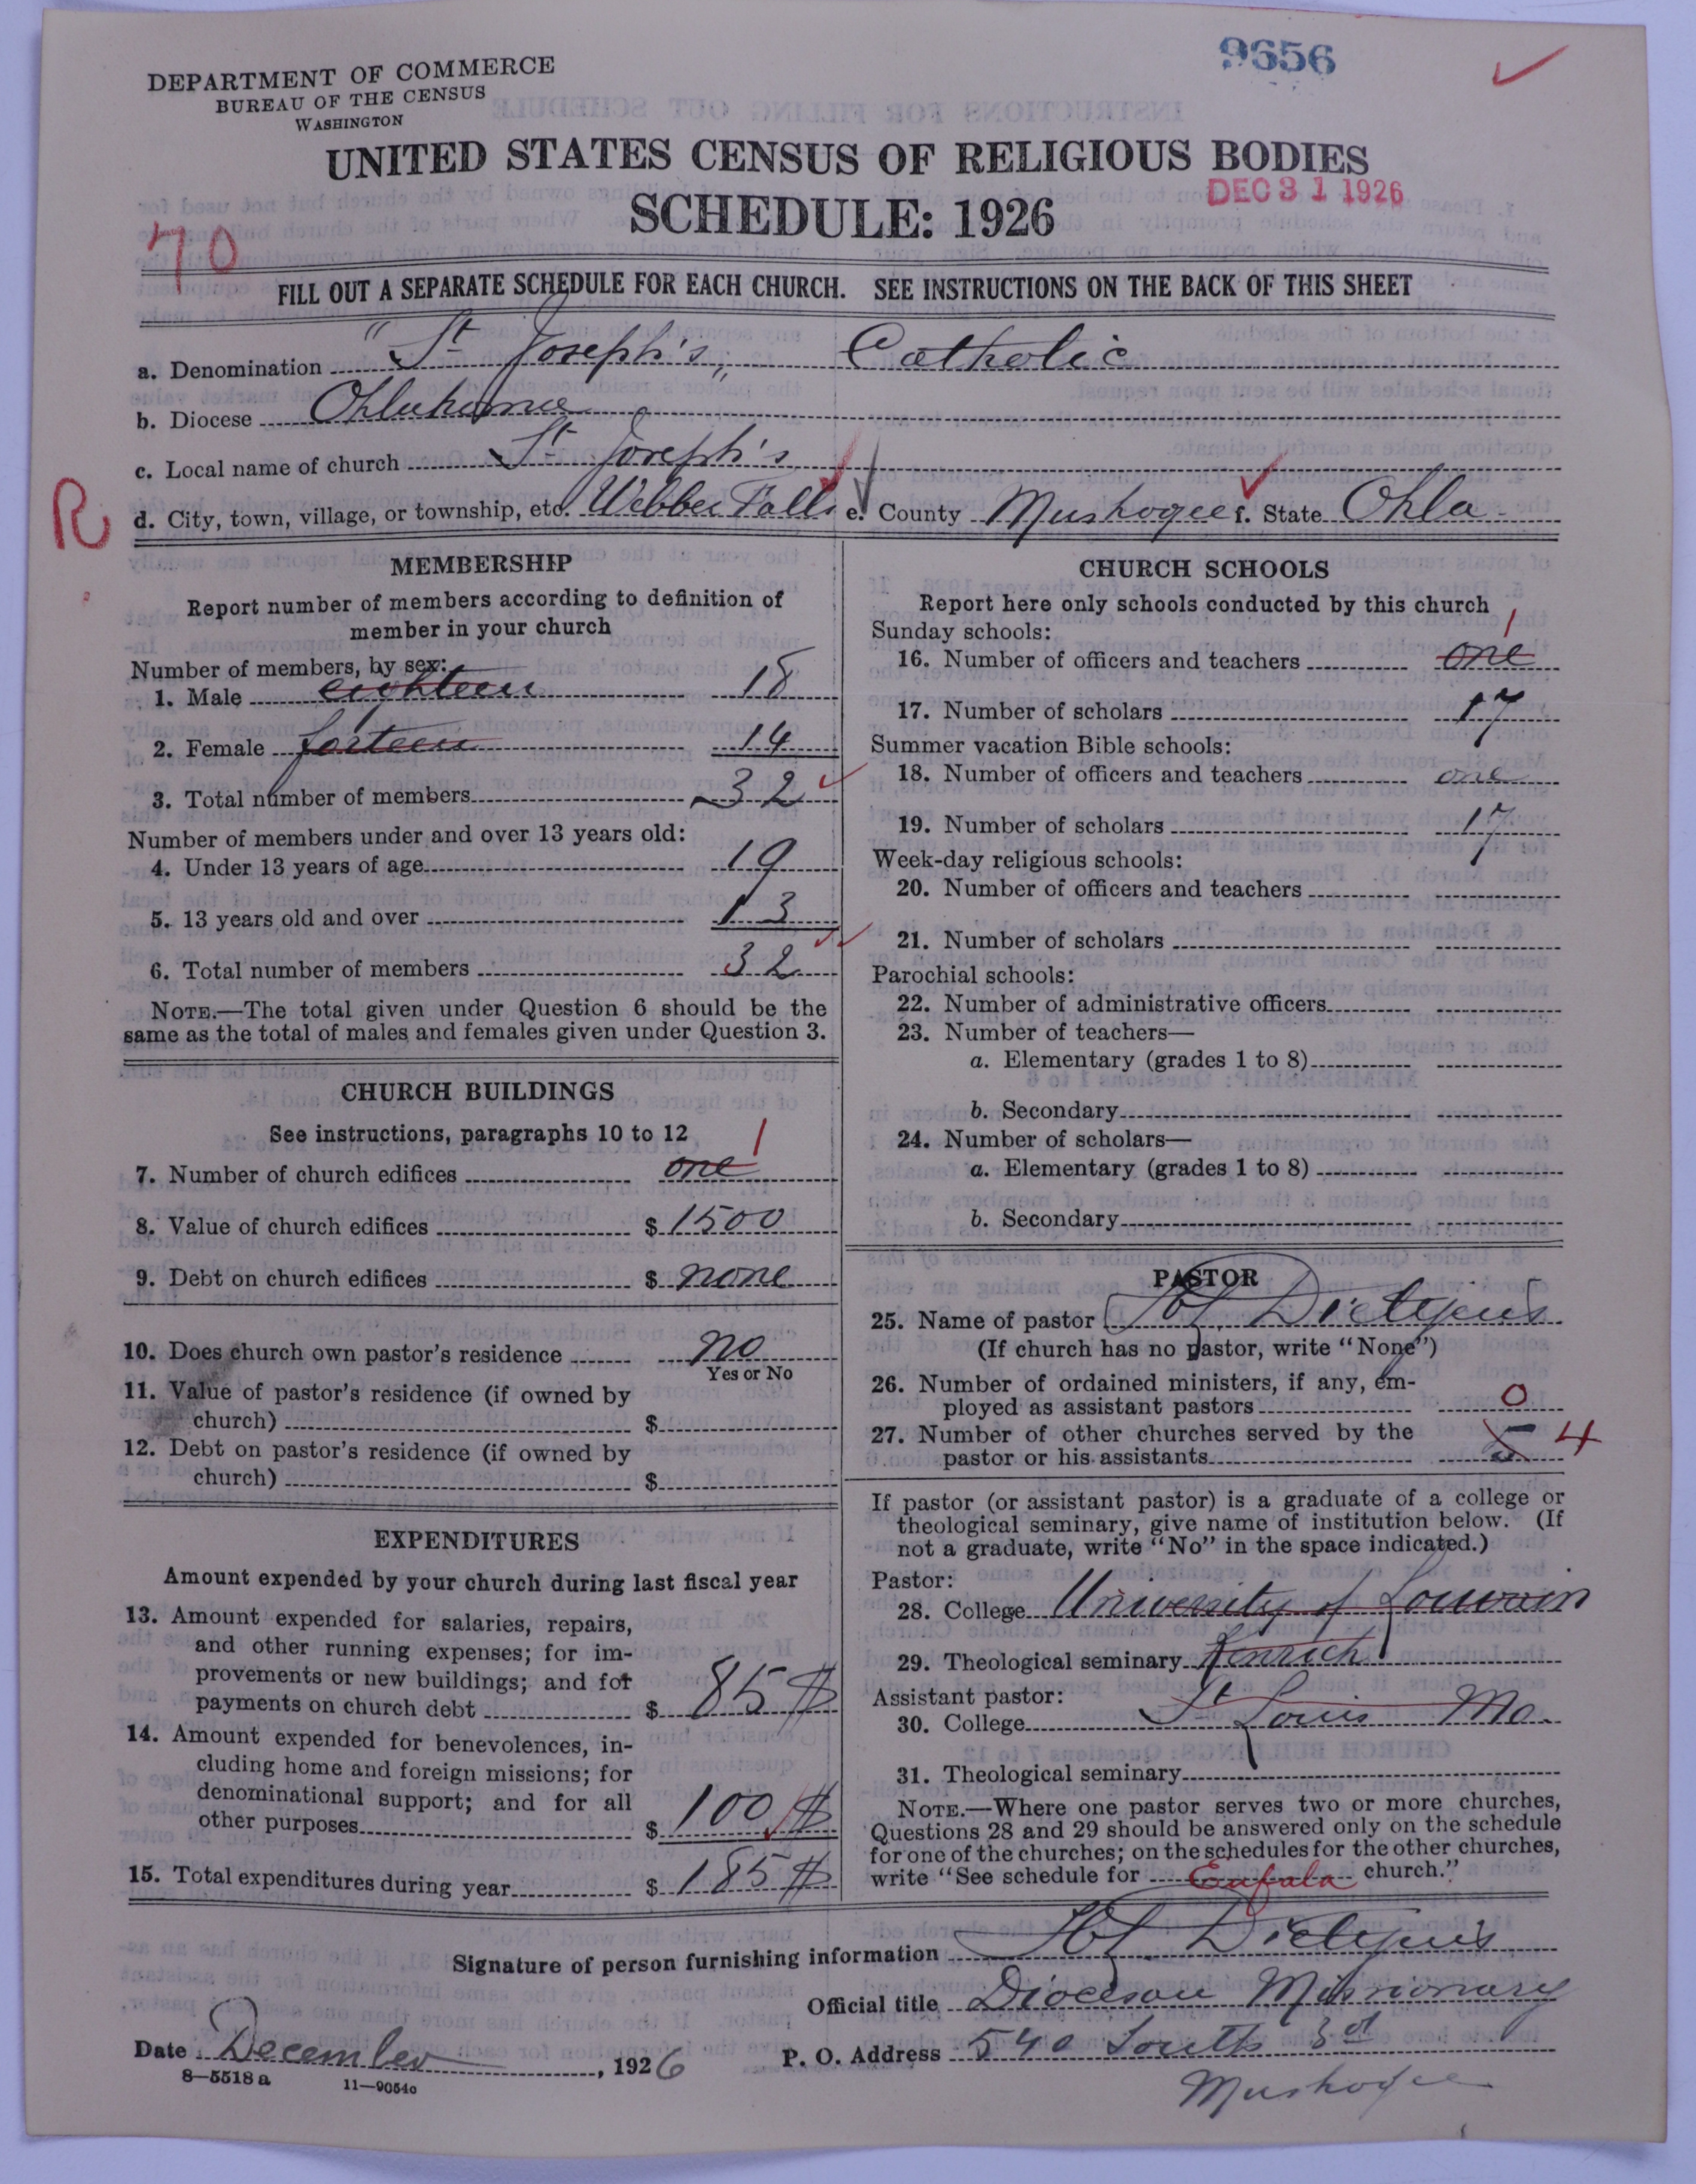 DEPARTMENT OF COMMERCE
BUREAU OF THE CENSUS
WASHINGTON
9656
UNITED STATES CENSUS OF RELIGIOUS BODIES
SCHEDULE: 1926
DEC 31 1926
70
FILL OUT A SEPARATE SCHEDULE FOR EACH CHURCH. SEE INSTRUCTIONS ON THE BACK OF THIS SHEET
a. Denomination "St Joseph's" Catholic
b. Diocese Oklahoma
c. Local name of church St Joseph's
R
d. City, town, village, or township, etc. Webber Falls e. County Muskogee f. State Okla
MEMBERSHIP
Report number of members according to definition of
member in your church
Number of members, by sex:
1. Male eighteen 18
2. Female forteen 14
3. Total number of members 32
Number of members under and over 13 years old:
4. Under 13 years of age 19
5. 13 years old and over 13
6. Total number of members 32
NOTE.—The total given under Question 6 should be the
same as the total of males and females given under Question 3.
CHURCH BUILDINGS
See instructions, paragraphs 10 to 12
7. Number of church edifices one 1
8. Value of church edifices $ 1500
9. Debt on church edifices $ none
10. Does church own pastor's residence no
Yes or No
11. Value of pastor's residence (if owned by
church) $
12. Debt on pastor's residence (if owned by
church) $
EXPENDITURES
Amount expended by your church during last fiscal year
13. Amount expended for salaries, repairs,
and other running expenses; for im-
provements or new buildings; and for
payments on church debt $ 85 $
14. Amount expended for benevolences, in-
cluding home and foreign missions; for
denominational support; and for all
other purposes $ 100 $
15. Total expenditures during year $ 185 $
CHURCH SCHOOLS
Report here only schools conducted by this church
Sunday schools:
16. Number of officers and teachers one 1
17. Number of scholars 17
Summer vacation Bible schools:
18. Number of officers and teachers one
19. Number of scholars 17
Week-day religious schools:
20. Number of officers and teachers
21. Number of scholars
Parochial schools:
22. Number of administrative officers
23. Number of teachers—
a. Elementary (grades 1 to 8)
b. Secondary
24. Number of scholars—
a. Elementary (grades 1 to 8)
b. Secondary
PASTOR
25. Name of pastor
(If church has no pastor, write "None")
26. Number of ordained ministers, if any, em-
ployed as assistant pastors 0
27. Number of other churches served by the
pastor or his assistants 5 4
If pastor (or assistant pastor) is a graduate of a college or
theological seminary, give name of institution below. (If
not a graduate, write "No" in the space indicated.)
Pastor:
28. College University of Louvain
29. Theological seminary Kenrick
Assistant pastor:
30. College St Louis Mo.
31. Theological seminary
NOTE.—Where one pastor serves two or more churches,
Questions 28 and 29 should be answered only on the schedule
for one of the churches; on the schedules for the other churches,
write "See schedule for Eufala church."
Signature of person furnishing information
Official title Diocesan Missionary
Date December, 1926
P. O. Address 540 South 3rd
Muskogee
8—5518 a 11—9054c